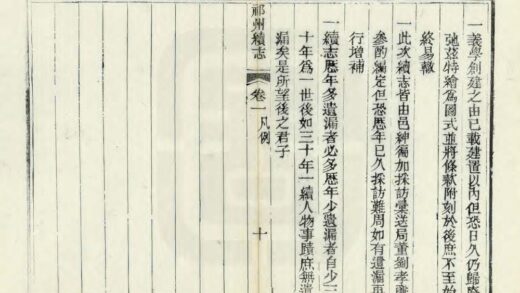 一義學創建之由已載建置以內但恐日久仍歸廢
弛茲特繪爲圖式並將條欵附刻於後庶不至始
終易轍
一此次續志皆由邑紳獨加採訪彙送局董劉孝
參酌編定但恐歷年已久採訪難周如有遺漏再
行增補
一續志歷年多遺漏者必多歷年少遺漏者自少三
十年爲一世後如三十年一續人物事蹟庶無遺
漏矣是所望後之君子
祁州續志 卷一凡例 十